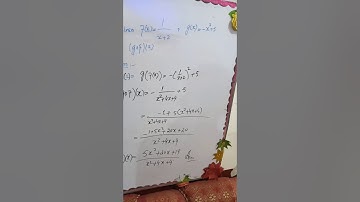 f(x) = 1/(x+2), g(x) = -x²+5
(gof)(x)
g(f(x)) = -(1/(x+2))² + 5
)(x) = - 1/(x²+4x+4) + 5
= (-1+5(x²+4x+4))/(x²+4x+4)
= (-1+5x²+20x+20)/(x²+4x+4)
(x) = (5x²+20x+19)/(x²+4x+4)